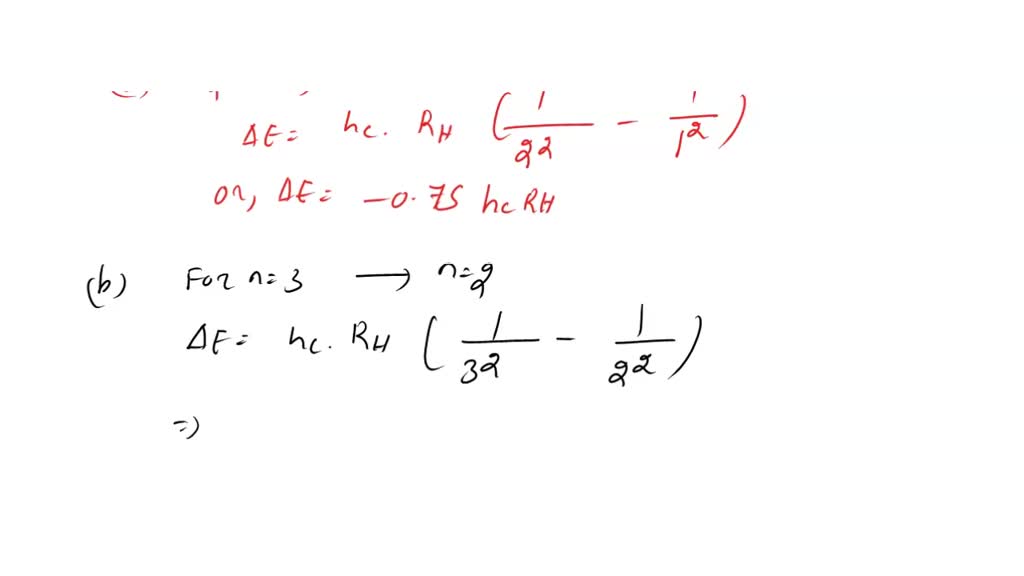 ΔE = hc. RH (1/2² - 1/1²)
or, ΔE = -0.75 hc RH
(b) For n=3 → n=2
ΔE = hc. RH (1/3² - 1/2²)
=)